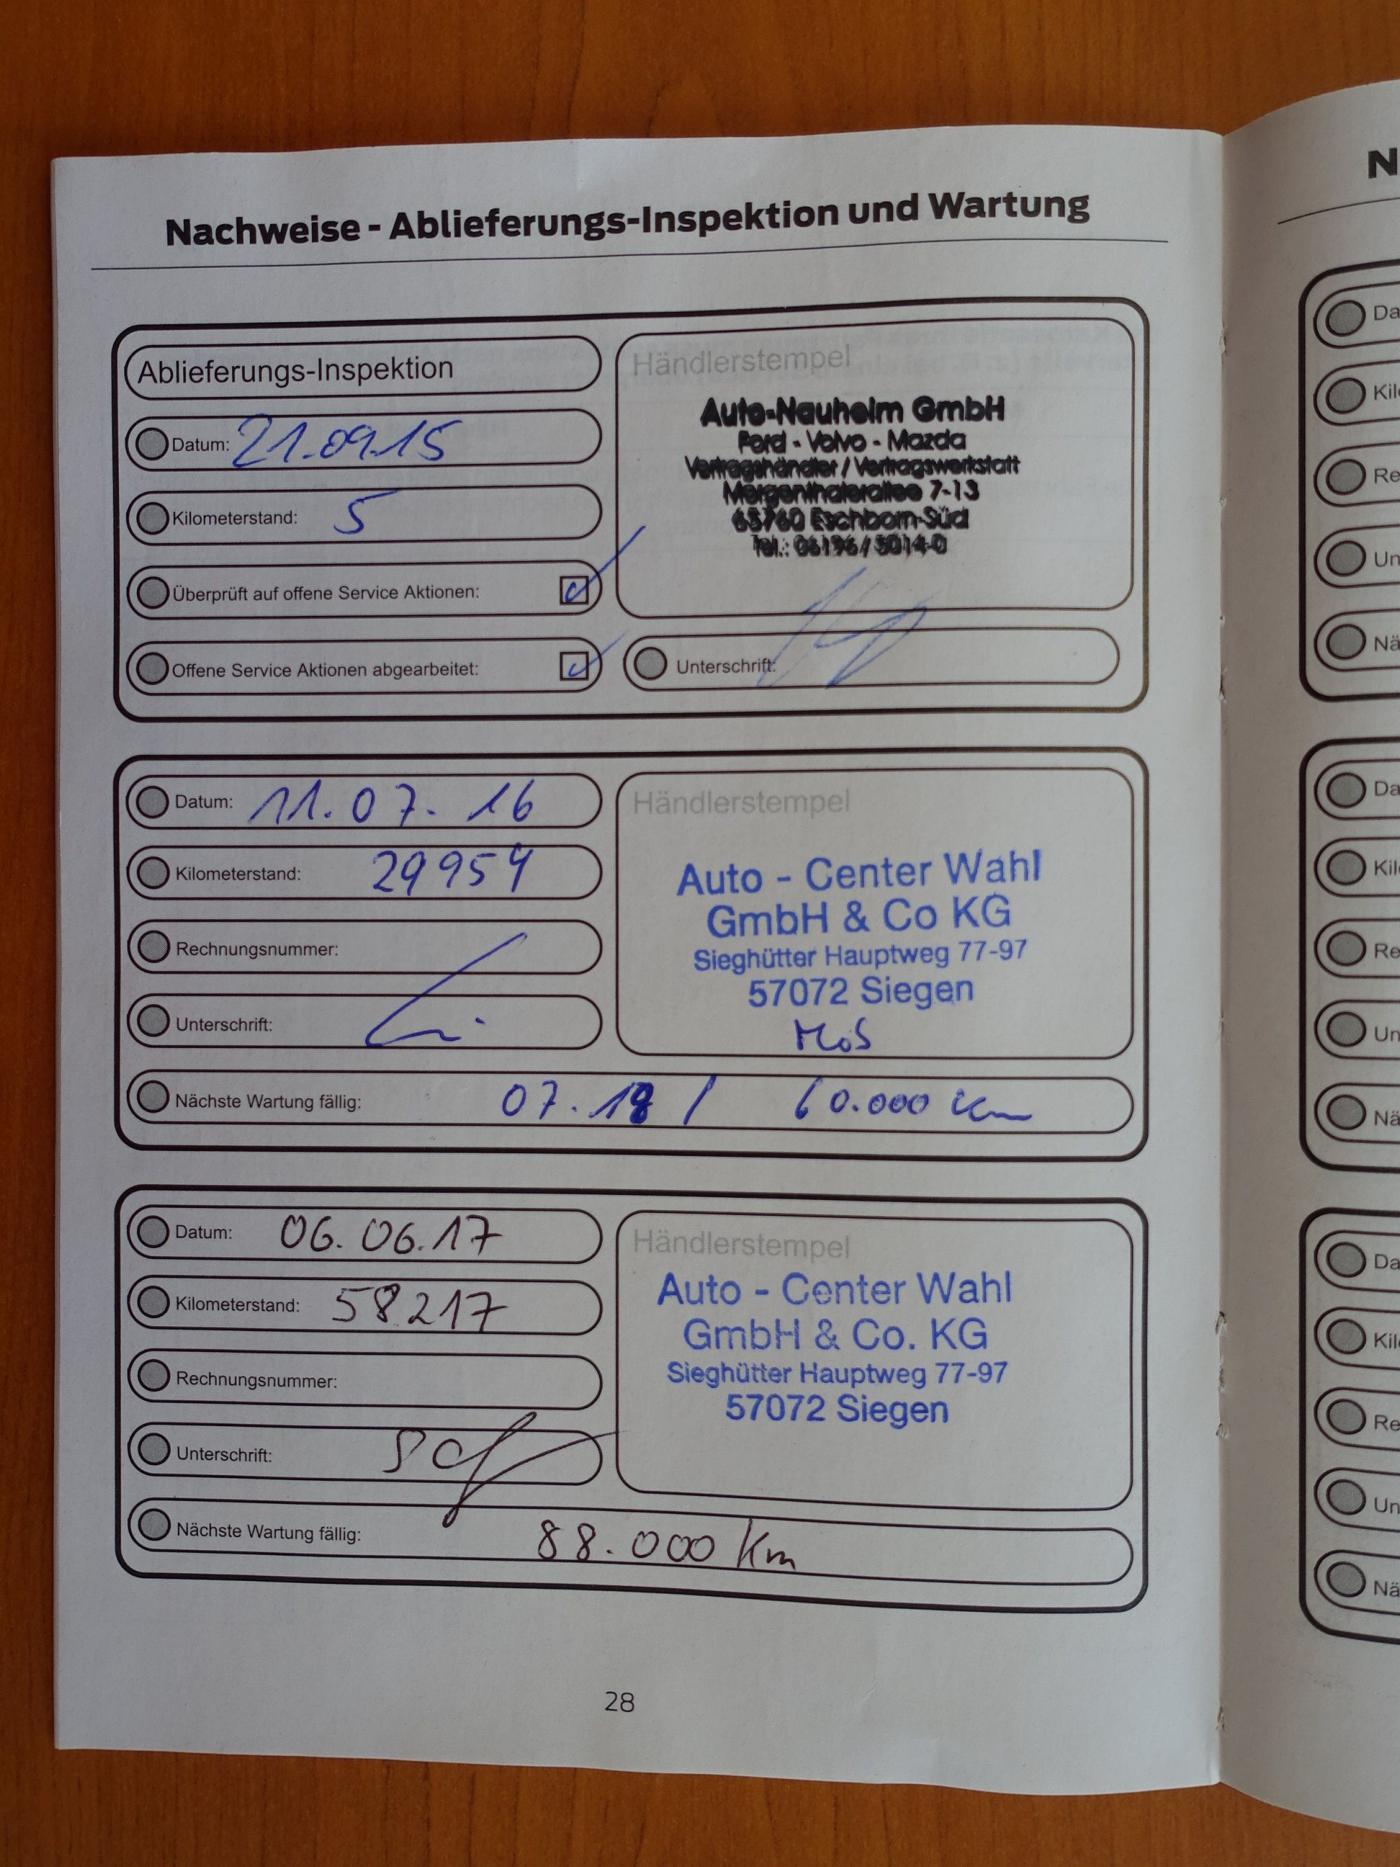 Nachweise - Ablieferungs-Inspektion und Wartung
Ablieferungs-Inspektion
Datum: 21.09.15
Kilometerstand: 5
Überprüft auf offene Service Aktionen:
Offene Service Aktionen abgearbeitet:
Händlerstempel
Auto-Nauheim GmbH
Ford - Volvo - Mazda
Vertragshändler / Vertragswerkstatt
Mergenthalerallee 7-13
65760 Eschborn-Süd
Tel.: 06196 / 5014-0
Unterschrift:
Datum: 11.07.16
Kilometerstand: 29954
Rechnungsnummer:
Unterschrift:
Händlerstempel
Auto - Center Wahl
GmbH & Co KG
Sieghütter Hauptweg 77-97
57072 Siegen
Nächste Wartung fällig: 07.18 / 60.000 km
Datum: 06.06.17
Kilometerstand: 58217
Rechnungsnummer:
Unterschrift:
Händlerstempel
Auto - Center Wahl
GmbH & Co. KG
Sieghütter Hauptweg 77-97
57072 Siegen
Nächste Wartung fällig: 88.000 Km
28
N
Da
Kil
Re
Un
Nä
Da
Kil
Re
Un
Nä
Da
Kil
Re
Un
Nä